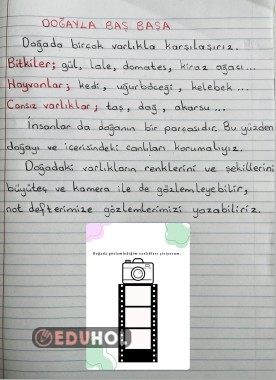 DOĞAYLA BAŞ BAŞA
Doğada birçok varlıkla karşılaşırız.
Bitkiler; gül, lale, domates, kiraz ağacı...
Hayvanlar; kedi, uğurböceği, kelebek...
Cansız varlıklar; taş, dağ, akarsu...
İnsanlar da doğanın bir parçasıdır. Bu yüzden
doğayı ve içerisindeki canlıları korumalıyız.
Doğadaki varlıkların renklerini ve şekillerini
büyüteç ve kamera ile de gözlemleyebilir,
not defterimize gözlemlerimizi yazabiliriz.
Doğada gözlemlediğim varlıkları çiziyorum.
EDUHOL